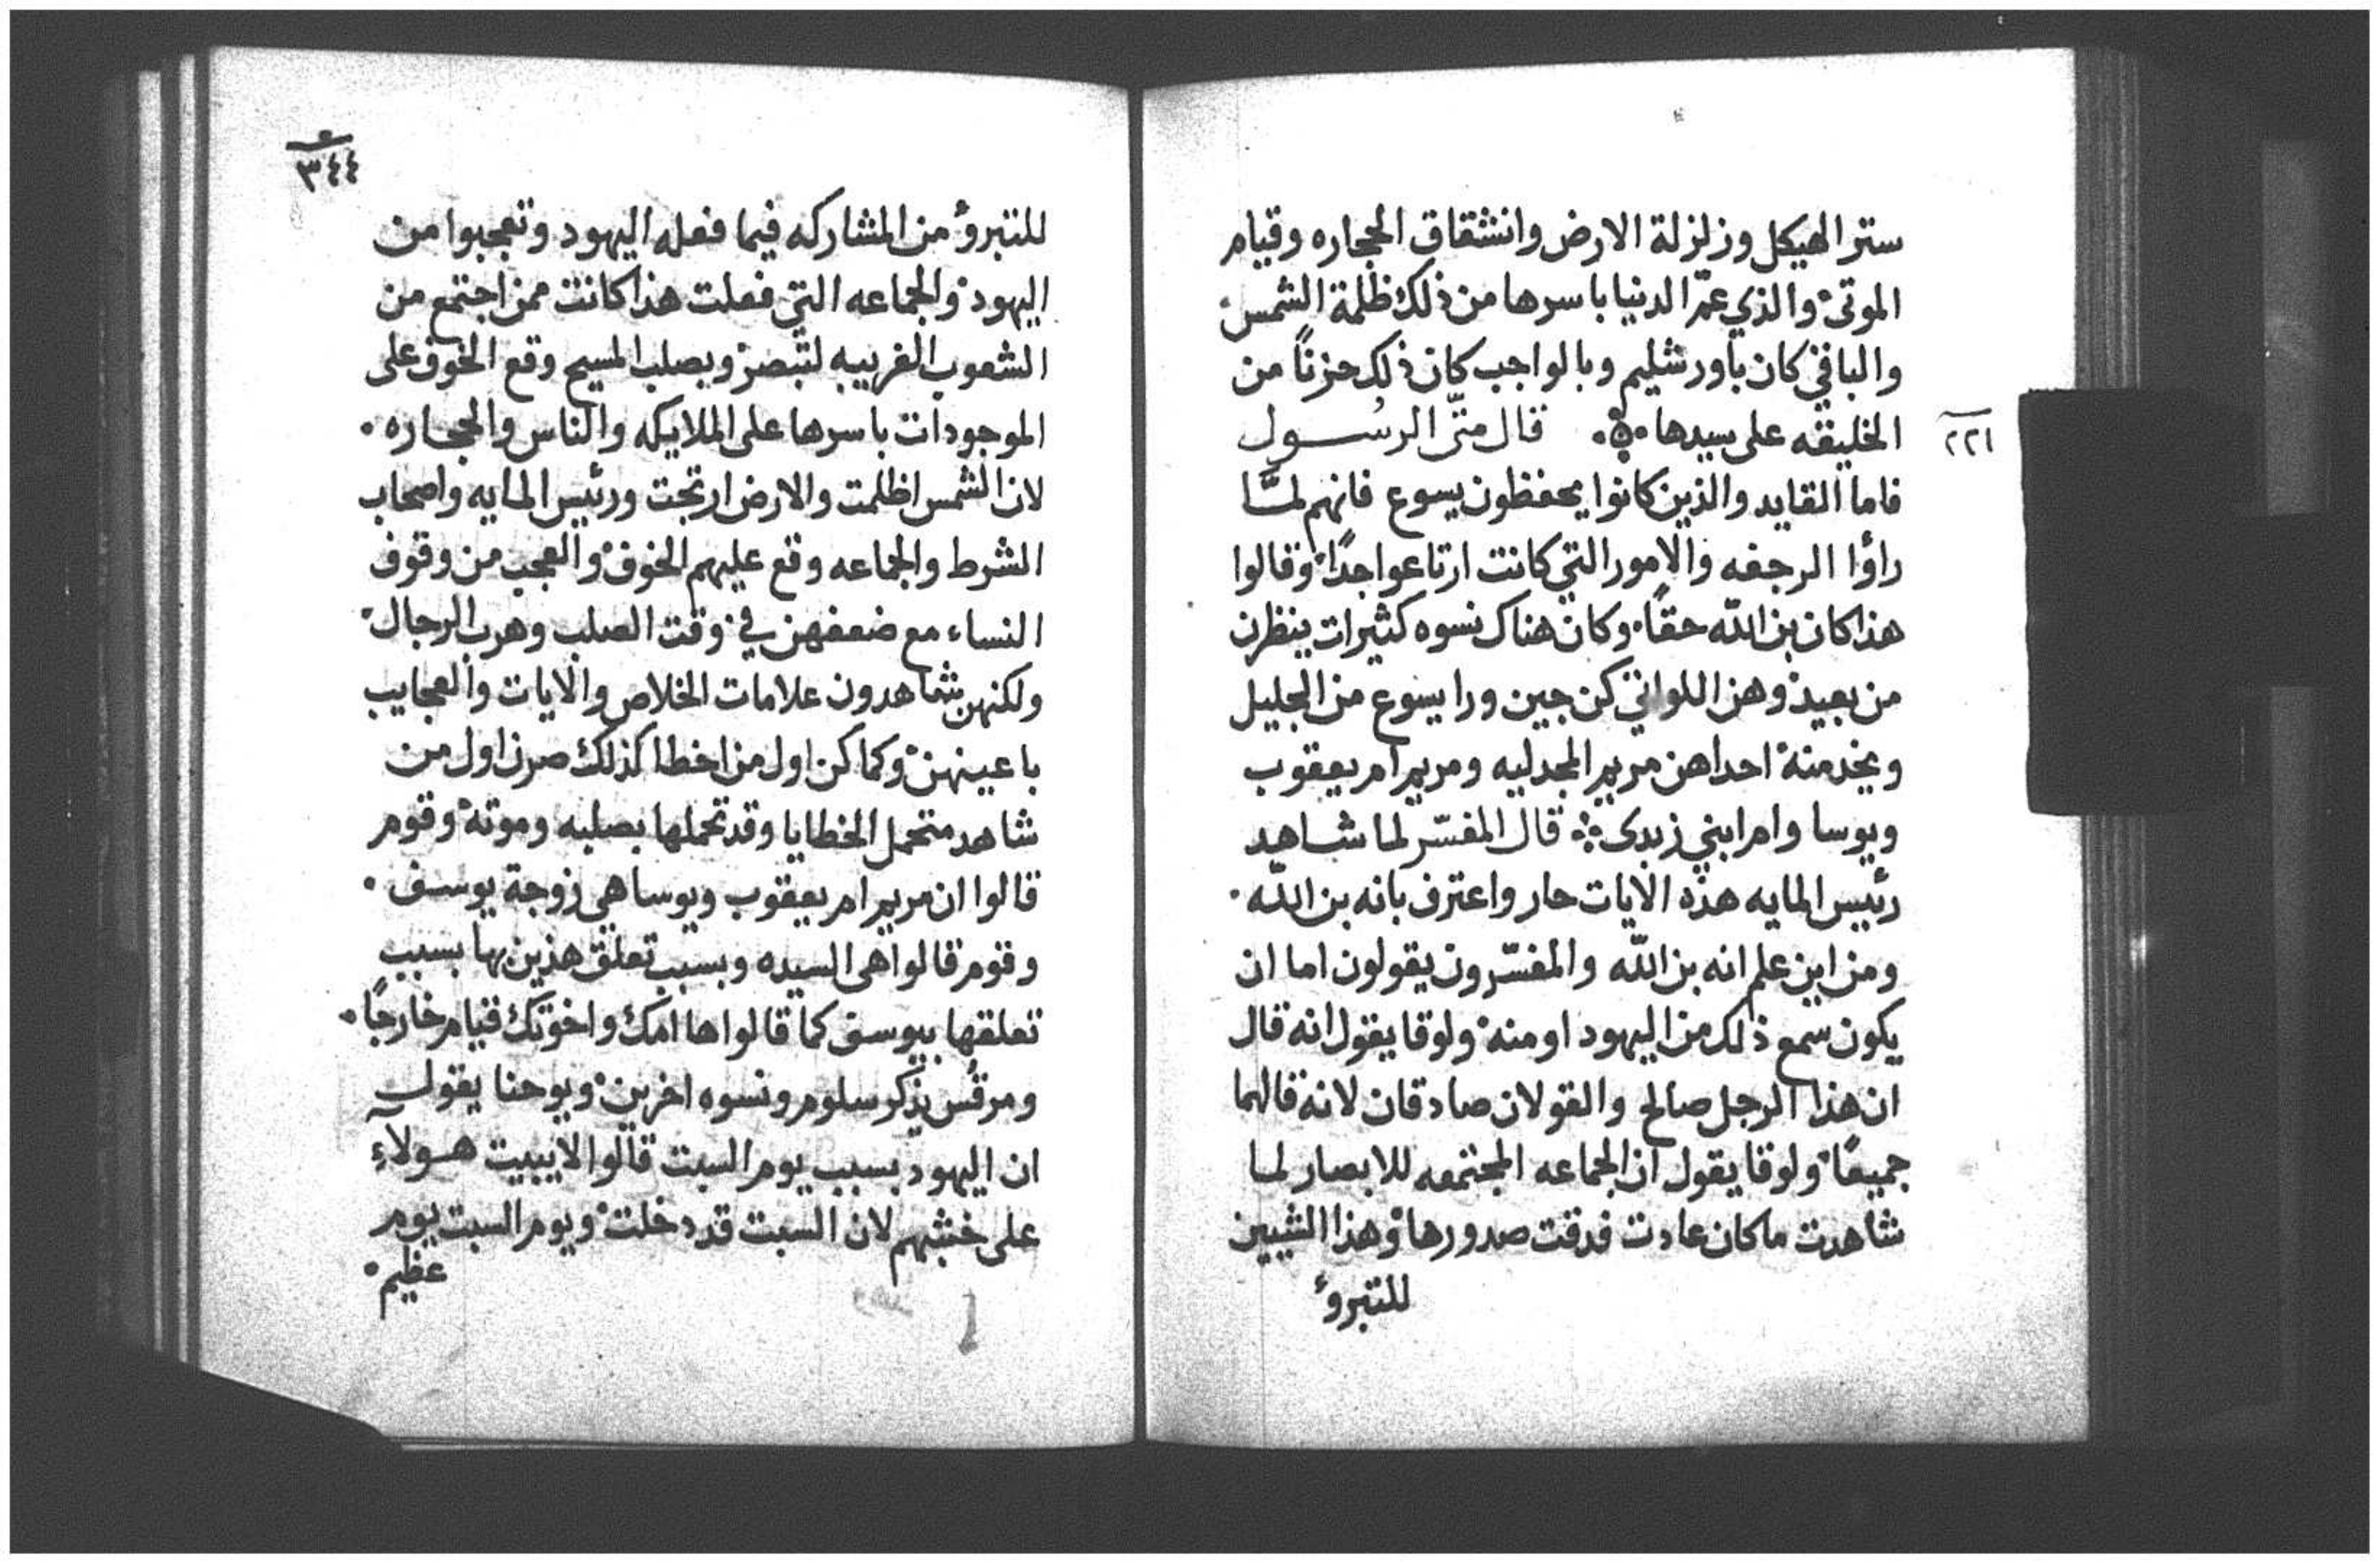 ستر الهيكل وزلزلة الارض وانشقاق الحجاره وقيام
الموتى والذي عمّ الدنيا باسرها من ذلك ظلمة الشمس
والباقي كان باورشليم وبالواجب كان ذلك حزنًا من
الخليقه على سيدها قال متّى الرسول
٢٢١
فاما القايد والذين كانوا يحفظون يسوع فانهم لمّا
راؤا الرجفه والامور التي كانت ارتاعوا جدًا وقالوا
هذا كان بن اللّه حقًا وكان هناك نسوه كثيرات ينظرن
من بعيد وهن اللواتي كن جين ورا يسوع من الجليل
ويخدمنة احداهن مريم المجدليه ومريم ام يعقوب
ويوسا وام ابني زبدى قال المفسّر لما شاهد
رئييس المايه هذه الايات حار واعترف بانه بن اللّه
ومن اين علم انه بن اللّه والمفسّرون يقولون اما ان
يكون سمع ذلك من اليهود او منه ولوقا يقول انه قال
ان هذا الرجل صالح والقولان صادقان لانه قالهما
جميعًا ولوقا يقول ان الجماعه المجتمعه للابصار لما
شاهدت ما كان عادت فدقت صدورها وهذا الشيين
للتبروُ
٣٤٤
للتبروُ من المشاركه فيما فعله اليهود وتعجبوا من
اليهود والجماعه التي فعلت هذا كانت ممن اجتمع من
الشعوب الغريبه لتبصر وبصلب المسيح وقع الخوف على
الموجودات باسرها على الملايكه والناس والحجاره
لان الشمس اظلمت والارض ارتجت ورئيس المايه واصحاب
الشرط والجماعه وقع عليهم الخوف والعجب من وقوف
النساء مع ضعفهن في وقت الصلب وهرب الرجال
ولكنهن يشاهدون علامات الخلاص والايات والعجايب
باعينهن وكما كن اول من اخطا كذلك صرن اول من
شاهد متحمل الخطايا وقد تحملها بصلبه وموته وقوم
قالوا ان مريم ام يعقوب ويوسا هي زوجة يوسف
وقوم قالوا هى السيده وبسبب تعلق هذين بها بسبب
تعلقها بيوسف كما قالوا ها امك واخوتك قيام خارجًا
ومرقس يذكر سلوم ونسوه اخرين ويوحنا يقول
ان اليهود بسبب يوم السبت قالوا لا يبيت هولآءِ
على خشبهم لان السبت قد دخلت ويوم السبت يوم
عظيم